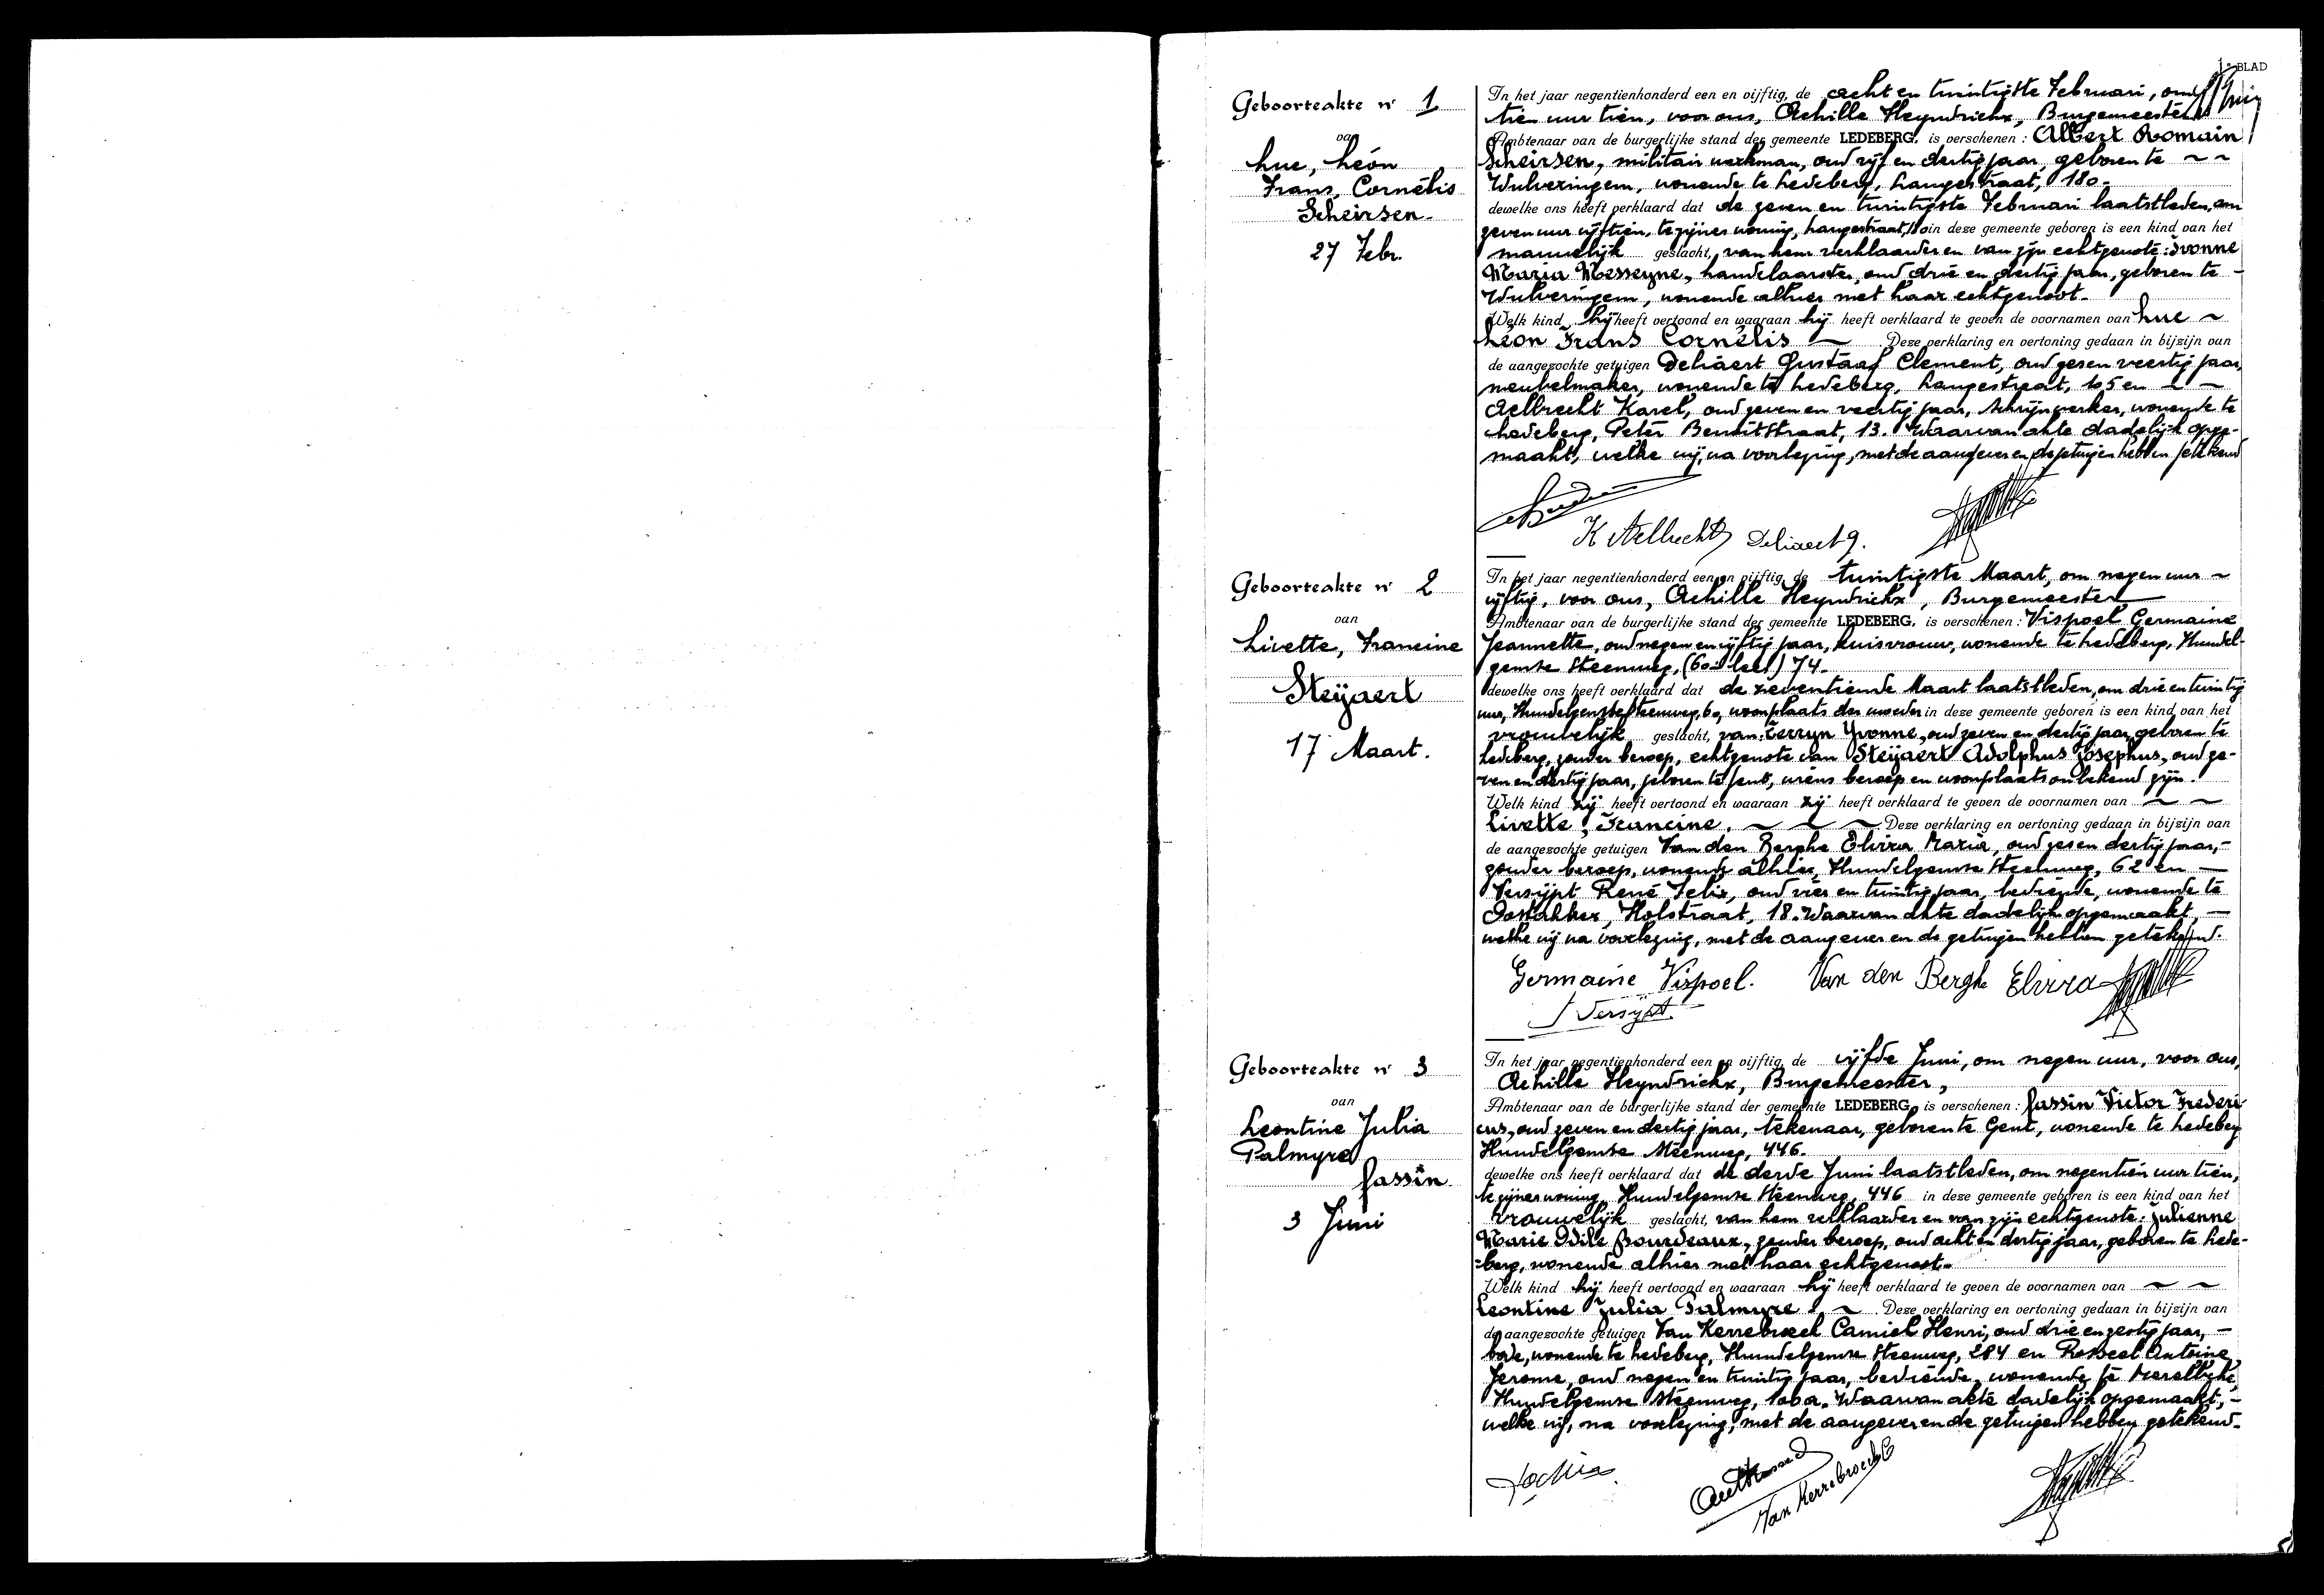 1e BLAD
Geboorteakte nr 1
van
Luc, Léon
Frans, Cornélis
Scheirsen.
27 Febr.
In het jaar negentienhonderd een en vijftig, de acht en twintigste Februari, om
tien uur tien, voor ons, Achille Heyndrickx, Burgemeester
Ambtenaar van de burgerlijke stand der gemeente LEDEBERG, is verschenen : Albert Romain
Scheirsen, militair werkman, oud vijf en dertig jaar, geboren te ~ ~
Wulveringem, wonende te Ledeberg, Langestraat, 180.
dewelke ons heeft verklaard dat de zeven en twintigste Februari laatstleden, om
zeven uur vijftien, te zijner woning, Langestraat, in deze gemeente geboren is een kind van het
mannelijk geslacht, van hem verklaarder en van zijn echtgenote : Ivonne
Maria Messeyne, handelaarster, oud drie en dertig jaar, geboren te -
Wulveringem, wonende alhier met haar echtgenoot.
Welk kind hij heeft vertoond en waaraan hij heeft verklaard te geven de voornamen van Luc ~
Léon Frans Cornélis ~ Deze verklaring en vertoning gedaan in bijzijn van
de aangezochte getuigen Deliaert Gustaaf Clement, oud zes en veertig jaar,
meubelmaker, wonende te Ledeberg, Langestraat, 105 en ~ ~
Aelbrecht Karel, oud zeven en veertig jaar, schrijnwerker, wonende te
Ledeberg, Peter Benoitstraat, 13. Waarvan akte dadelijk opge-
maakt, welke wij, na voorlezing, met de aangever en de getuigen hebben getekend
K Aelbrecht Deliaert G.
Geboorteakte nr 2
van
Livette, Francine
Steÿaert
17 Maart.
In het jaar negentienhonderd een en vijftig, de twintigste Maart, om negen uur ~
vijftig, voor ons, Achille Heyndrickx, Burgemeester
Ambtenaar van de burgerlijke stand der gemeente LEDEBERG, is verschenen : Vispoel Germaine
Jeannette, oud negen en vijftig jaar, huisvrouw, wonende te Ledeberg, Hundel-
gemse Steenweg, 74.
dewelke ons heeft verklaard dat de zeventiende Maart laatstleden, om drie en twintig
uur, Hundelgemse Steenweg, 60, woonplaats der moeder in deze gemeente geboren is een kind van het
vrouwelijk geslacht, van : Terryn Yvonne, oud zeven en dertig jaar, geboren te
Ledeberg, zonder beroep, echtgenote van Steÿaert Adolphus Josephus, oud ze-
ven en dertig jaar, geboren te Gent, wiens beroep en woonplaats onbekend zijn.
Welk kind zij heeft vertoond en waaraan zij heeft verklaard te geven de voornamen van ~ ~
Livette, Francine. ~ ~ ~ Deze verklaring en vertoning gedaan in bijzijn van
de aangezochte getuigen Van den Berghe Elvira Maria, oud zes en dertig jaar, -
zonder beroep, wonende alhier, Hundelgemse Steenweg, 62 en —
Versijpt René Felix, oud vier en twintig jaar, bediende, wonende te
Oostakker, Holstraat, 18. Waarvan akte dadelijk opgemaakt, —
welke wij na voorlezing, met de aangever en de getuigen hebben getekend.
Germaine Vispoel. Van den Berghe Elvira
Versijpt.
Geboorteakte nr 3
van
Leontine Julia
Palmyre
Jassin.
3 Juni
In het jaar negentienhonderd een en vijftig, de vijfde Juni, om negen uur, voor ons,
Achille Heyndrickx, Burgemeester,
Ambtenaar van de burgerlijke stand der gemeente LEDEBERG, is verschenen : Jassin Victor Frederi
cus, oud zeven en dertig jaar, tekenaar, geboren te Gent, wonende te Ledeberg
Hundelgemse Steenweg, 446.
dewelke ons heeft verklaard dat de derde Juni laatstleden, om negentien uur tien,
te zijner woning, Hundelgemse Steenweg, 446 in deze gemeente geboren is een kind van het
vrouwelijk geslacht, van hem verklaarder en van zijn echtgenote : Julienne
Marie Odile Bourdeaux, zonder beroep, oud acht en dertig jaar, geboren te Lede-
berg, wonende alhier met haar echtgenoot.
Welk kind hij heeft vertoond en waaraan hij heeft verklaard te geven de voornamen van ~ ~
Leontine Julia Palmyre. ~ Deze verklaring en vertoning gedaan in bijzijn van
de aangezochte getuigen Van Kerrebroeck Camiel Henri, oud drie en zestig jaar, -
bode, wonende te Ledeberg, Hundelgemse Steenweg, 284 en Rosseel Antoine
Jerome, oud negen en twintig jaar, bediende, wonende te Merelbeke,
Hundelgemse Steenweg, 100a. Waarvan akte dadelijk opgemaakt, -
welke wij, na voorlezing, met de aangever en de getuigen hebben getekend.
Van Kerrebroeck C